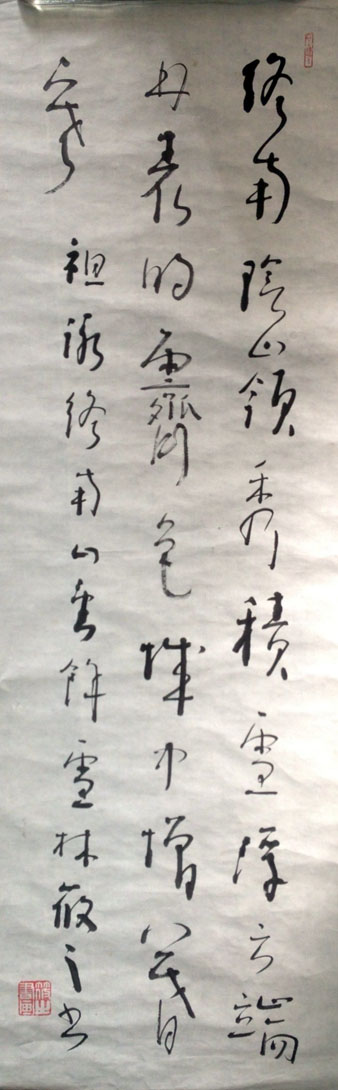 終南陰嶺秀積雪浮雲端
林表明霽色城中增暮
寒 祖詠終南山望餘雪 林筱之书